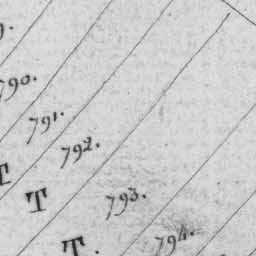 790.
791.
792.
T
T
793.
T.
794.